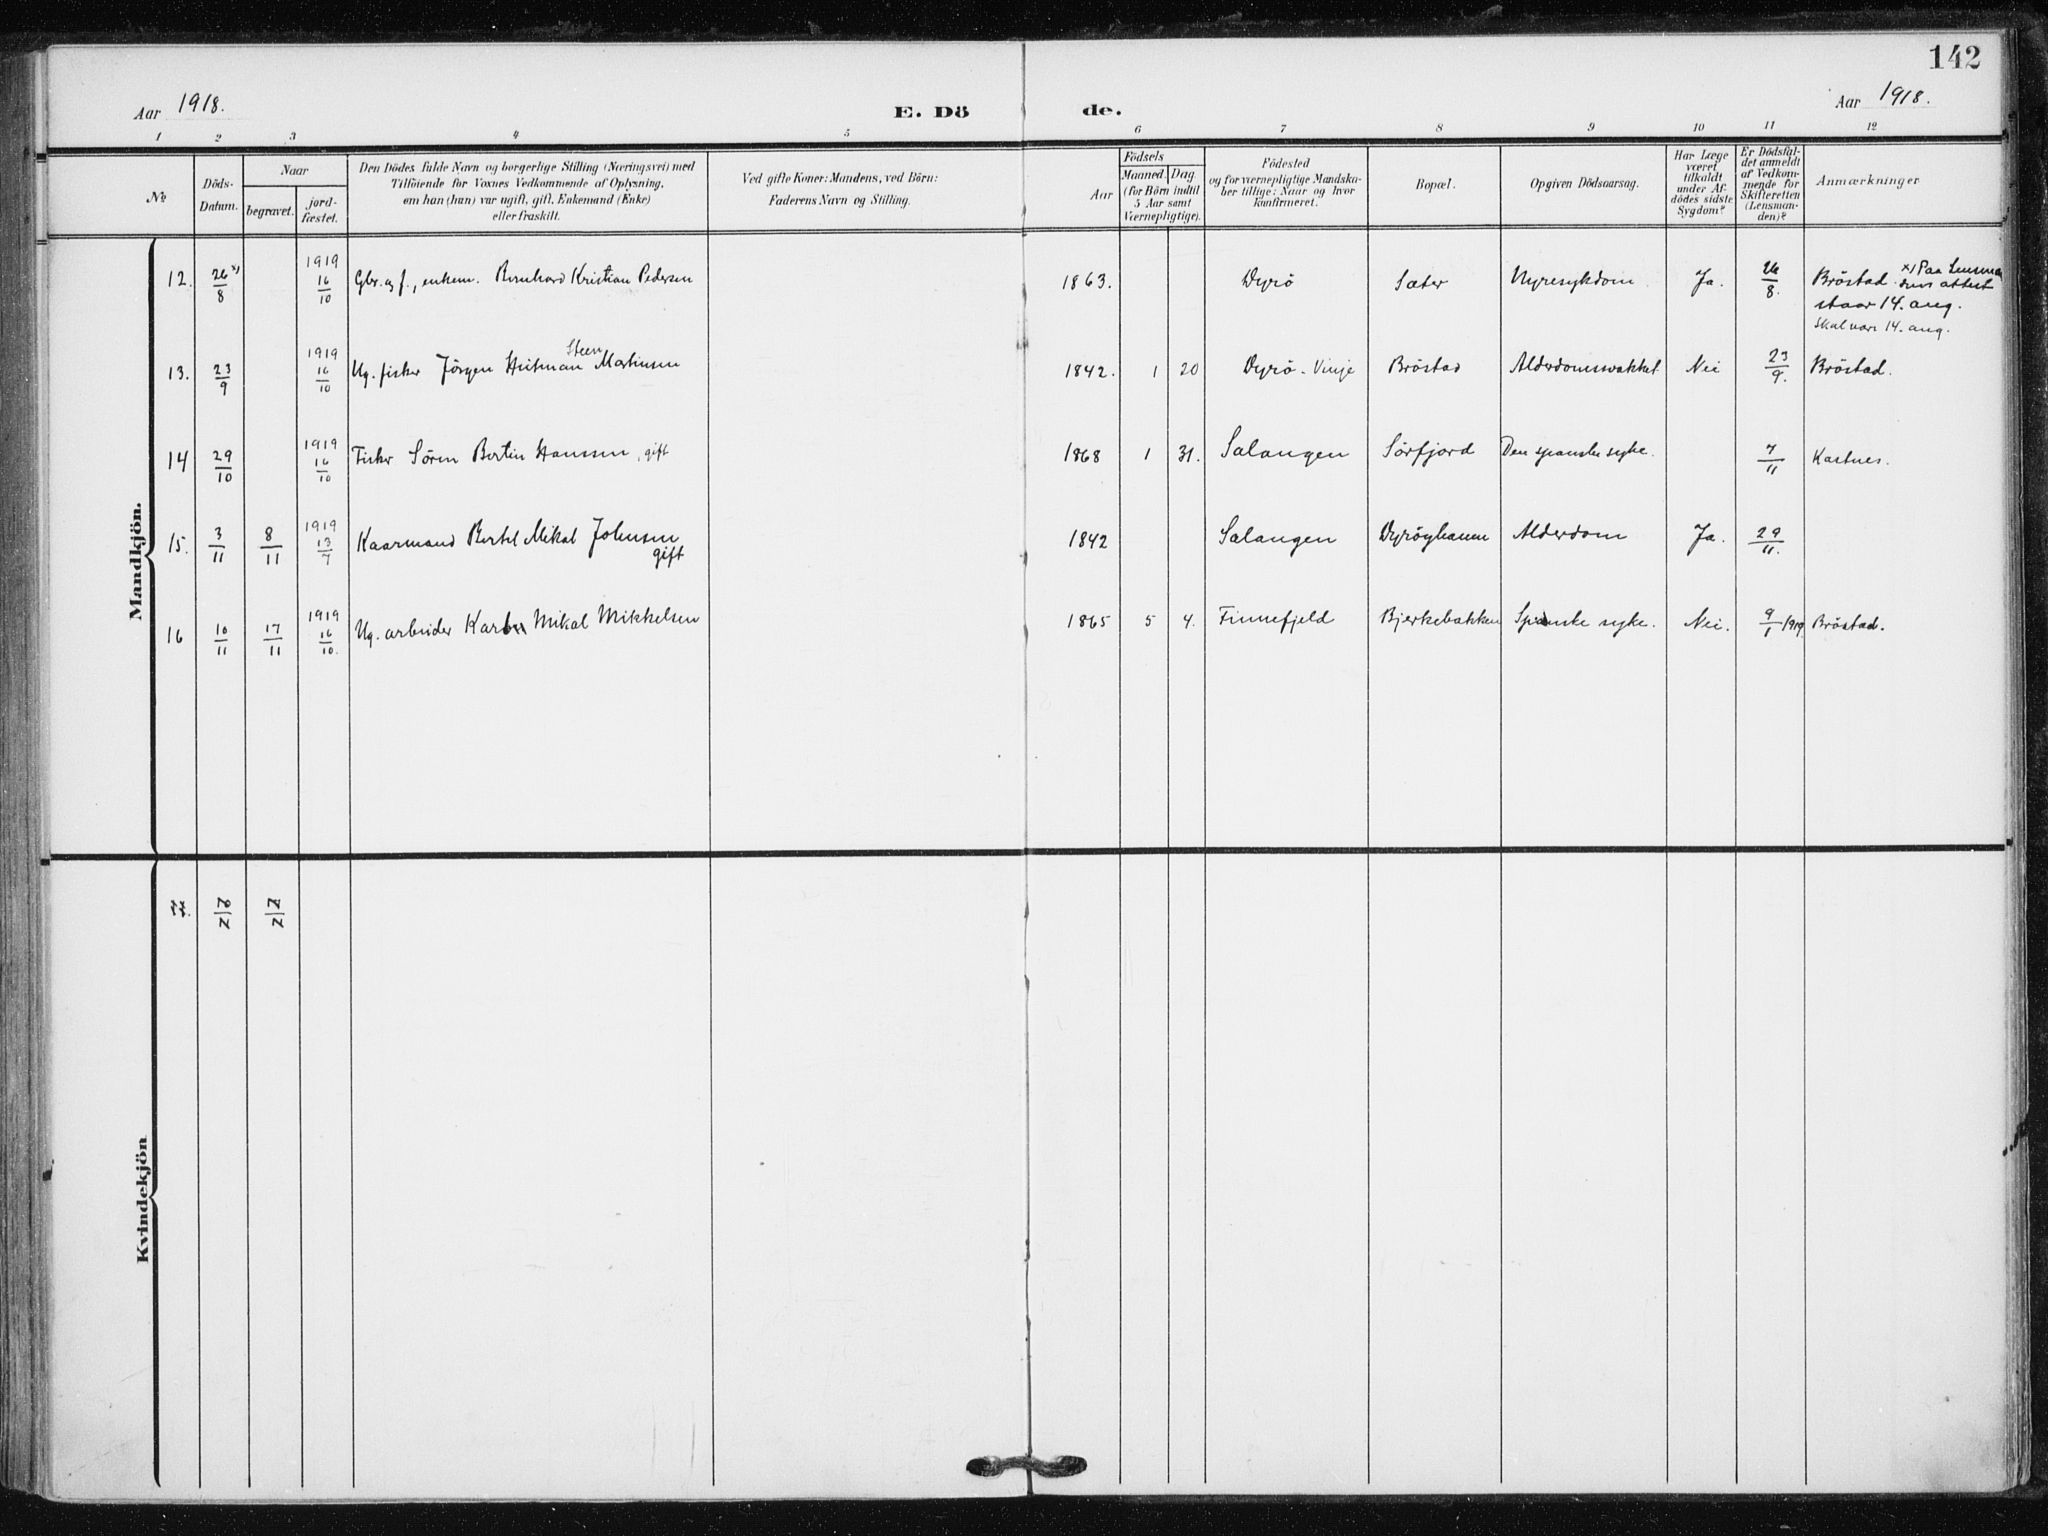 142
Aar 1918.
E. Dö
de.
Aar 1918.
1 2 3 4 5 6 7 8 9 10 11 12
No
Döds-
Datum.
Naar
begravet.
jord-
fæstet.
Den Dödes fulde Navn og borgerlige Stilling (Næringsvei) med
Tilföiende for Voxnes Vedkommende af Oplysning,
om han (hun) var ugift, gift, Enkemand (Enke)
eller fraskilt.
Ved gifte Koner: Mandens, ved Börn:
Faderens Navn og Stilling.
Födsels
Aar
Maaned. Dag
(for Börn indtil
5 Aar samt
Værnepligtige).
Födested
og for værnepligtige Mandska-
ber tillige: Naar og hvor
konfirmeret.
Bopæl.
Opgiven Dödsaarsag.
Har Læge
været
tilkaldt
under Af-
dödes sidste
Sygdom?
Er Dödsfal-
det anmeldt
af Vedkom-
mende for
Skifteretten
(Lensman-
den)?
Anmærkninger
Mandkjön.
12. 26/8 x) 1919 16/10 Gbr. og f., enkem. Bernhard Kristian Pedersen 1863. Dyrö Sæter Nyresykdom. Ja. 26/8. Bröstad. x) Paa Lensman
dens attest
staar 14. aug.
Skal være 14. aug.
Steen
13. 23/9 1919 16/10 Ug. fisker Jörgen Martinsen 1842. 1 20 Dyrö - Vinje Bröstad Alderdomssvakhet Nei 23/9. Bröstad.
14 29/10 1919 16/10 Fisker Sören Bertin Hansen, gift 1868 1 31. Salangen Sörfjord Den spanske syke. 7/11 Kastnes.
15. 3/11 8/11 1919 13/7 Kaarmand Bertel Mikal Johnsen
gift 1842 Salangen Dyröyhavn Alderdom Ja. 29/11.
16 10/11 17/11 1919 16/10. Ug. arbeider Mikal Mikkelsen 1865 5 4. Finnefjeld Bjerkebakken Spanske syke. Nei. 9/1 1919 Bröstad.
Kvindekjön